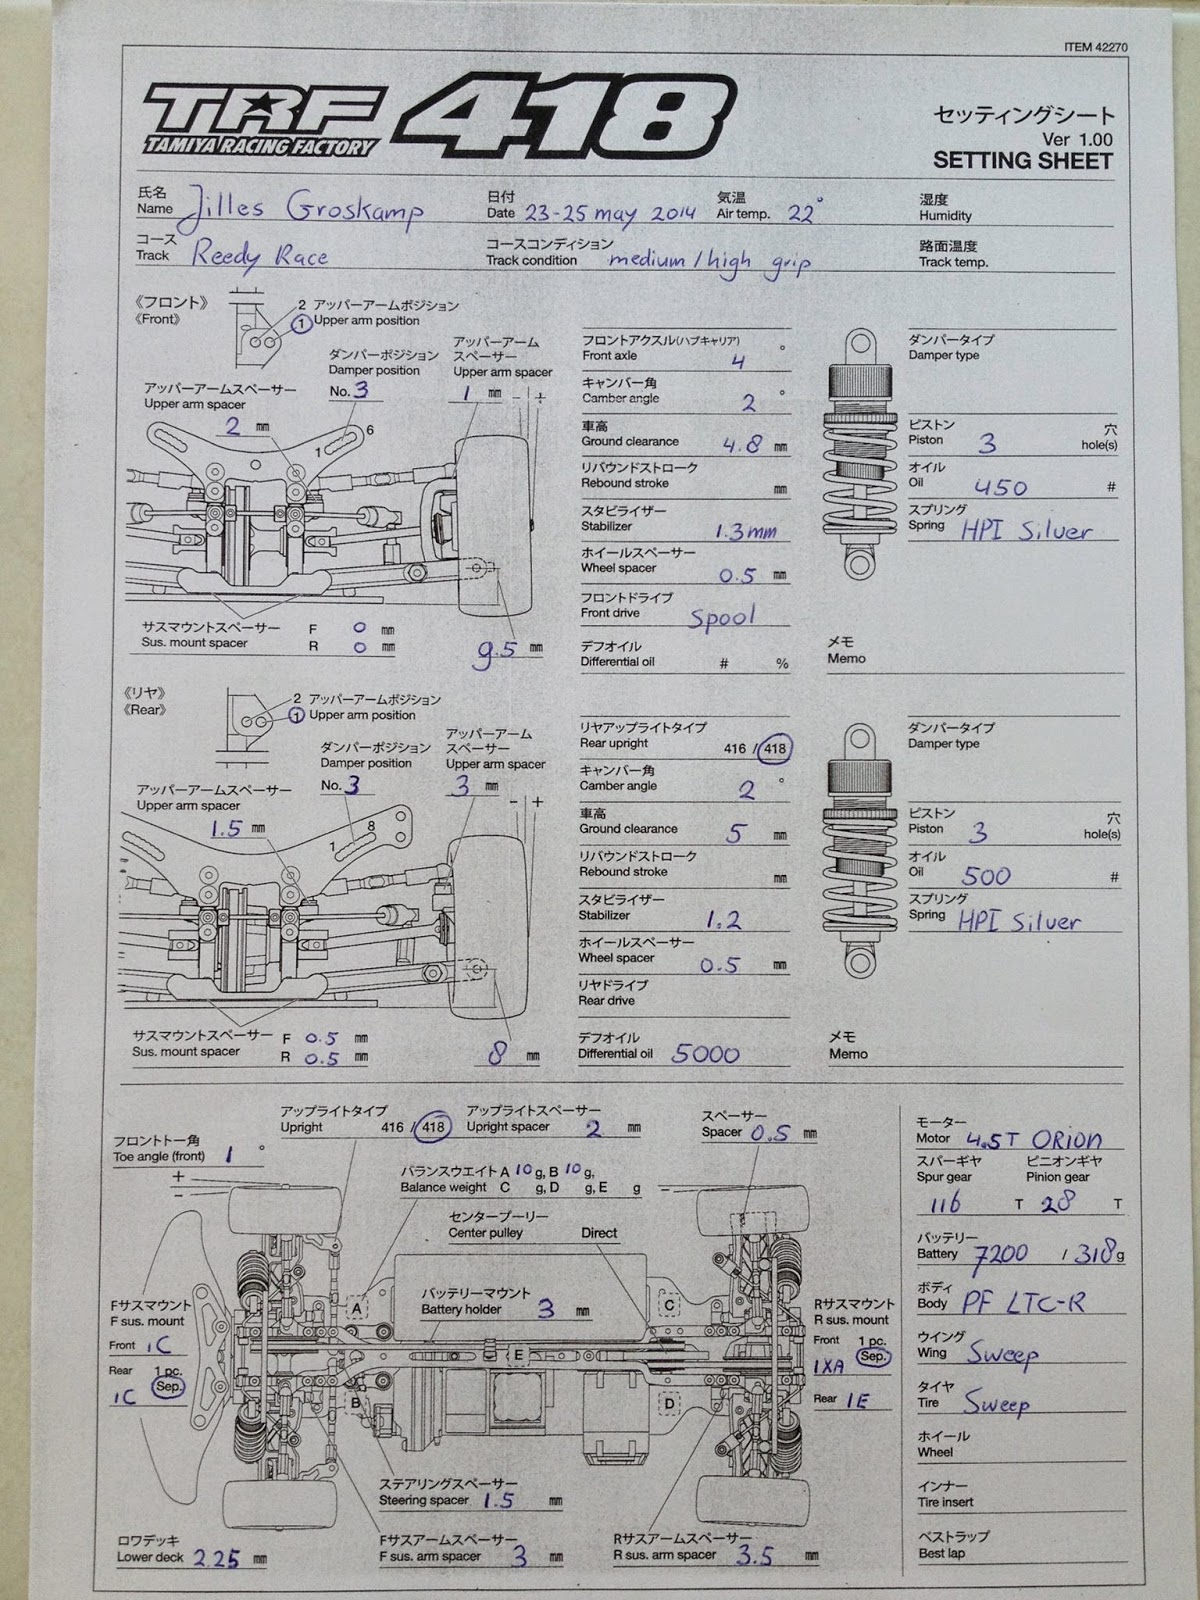 ITEM 42270
TRF 418
TAMIYA RACING FACTORY
セッティングシート
Ver 1.00
SETTING SHEET
氏名
Name Jilles Groskamp
日付
Date 23-25 may 2014
気温
Air temp. 22°
湿度
Humidity
コース
Track Reedy Race
コースコンディション
Track condition medium / high grip
路面温度
Track temp.
《フロント》
《Front》
2 アッパーアームポジション
1 Upper arm position
ダンパーポジション
Damper position
No. 3
アッパーアーム
スペーサー
Upper arm spacer
1 mm
- +
アッパーアームスペーサー
Upper arm spacer
2 mm
1 6
サスマウントスペーサー
Sus. mount spacer
F 0 mm
R 0 mm
9.5 mm
フロントアクスル(ハブキャリア)
Front axle 4 °
キャンバー角
Camber angle 2 °
車高
Ground clearance 4.8 mm
リバウンドストローク
Rebound stroke mm
スタビライザー
Stabilizer 1.3mm
ホイールスペーサー
Wheel spacer 0.5 mm
フロントドライブ
Front drive Spool
デフオイル
Differential oil # %
ダンパータイプ
Damper type
ピストン 穴
Piston 3 hole(s)
オイル
Oil 450 #
スプリング
Spring HPI Silver
メモ
Memo
《リヤ》
《Rear》
2 アッパーアームポジション
1 Upper arm position
ダンパーポジション
Damper position
No. 3
アッパーアーム
スペーサー
Upper arm spacer
3 mm
- +
アッパーアームスペーサー
Upper arm spacer
1.5 mm
1 8
サスマウントスペーサー
Sus. mount spacer
F 0.5 mm
R 0.5 mm
8 mm
リヤアップライトタイプ
Rear upright 416 / 418
キャンバー角
Camber angle 2 °
車高
Ground clearance 5 mm
リバウンドストローク
Rebound stroke mm
スタビライザー
Stabilizer 1.2
ホイールスペーサー
Wheel spacer 0.5 mm
リヤドライブ
Rear drive
デフオイル
Differential oil 5000
ダンパータイプ
Damper type
ピストン 穴
Piston 3 hole(s)
オイル
Oil 500 #
スプリング
Spring HPI Silver
メモ
Memo
アップライトタイプ
Upright 416 / 418
アップライトスペーサー
Upright spacer 2 mm
スペーサー
Spacer 0.5 mm
フロントトー角
Toe angle (front) 1 °
+
-
バランスウエイト A 10 g, B 10 g,
Balance weight C g, D g, E g
-
センタープーリー
Center pulley Direct
バッテリーマウント
Battery holder 3 mm
A
B
C
D
E
Fサスマウント
F sus. mount
Front 1C
Rear 1 pc.
1C Sep.
Rサスマウント
R sus. mount
Front 1 pc.
1XA Sep.
Rear 1E
ステアリングスペーサー
Steering spacer 1.5 mm
ロワデッキ
Lower deck 2.25 mm
Fサスアームスペーサー
F sus. arm spacer 3 mm
Rサスアームスペーサー
R sus. arm spacer 3.5 mm
モーター
Motor 4.5T ORION
スパーギヤ ピニオンギヤ
Spur gear Pinion gear
116 T 28 T
バッテリー
Battery 7200 / 318 g
ボディ
Body PF LTC-R
ウイング
Wing Sweep
タイヤ
Tire Sweep
ホイール
Wheel
インナー
Tire insert
ベストラップ
Best lap